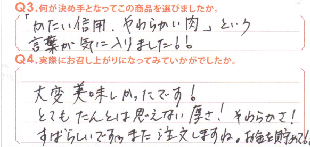 Q3.何が決め手となってこの商品を選びましたか。
「かたい信用、やわらかい肉」という
言葉が気に入りました!!
Q4.実際にお召し上がりになってみていかがでしたか。
大変美味しかったです!
とてもたんとは思えない厚さ!やわらかさ!
すばらしいですまた注文しますね。お金を貯めて!